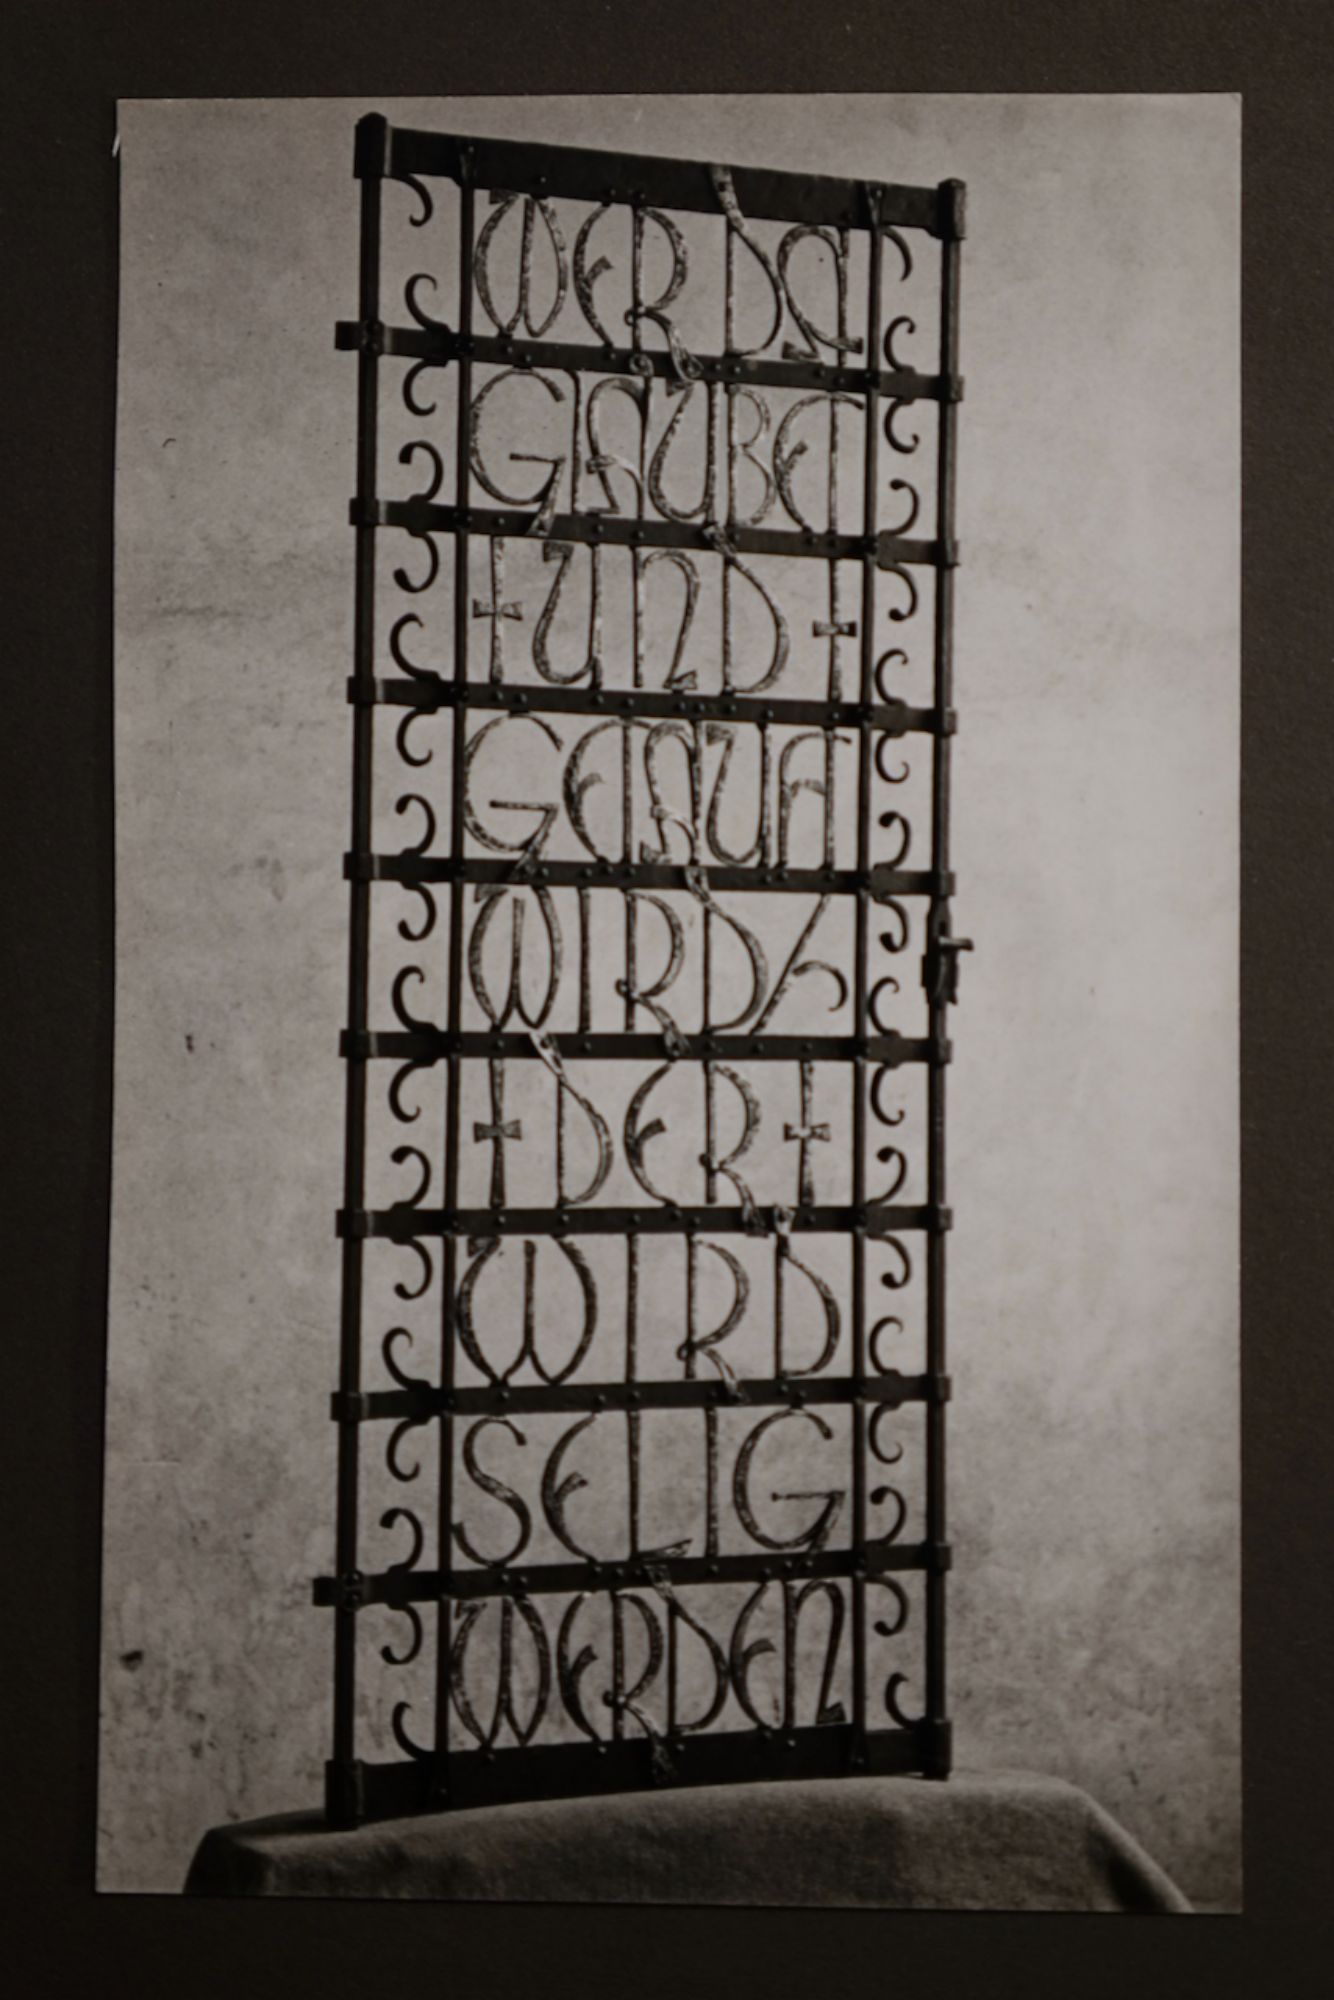 WER DA
GLAUBET
UND
GETAUFT
WIRD
DER
WIRD
SELIG
WERDEN